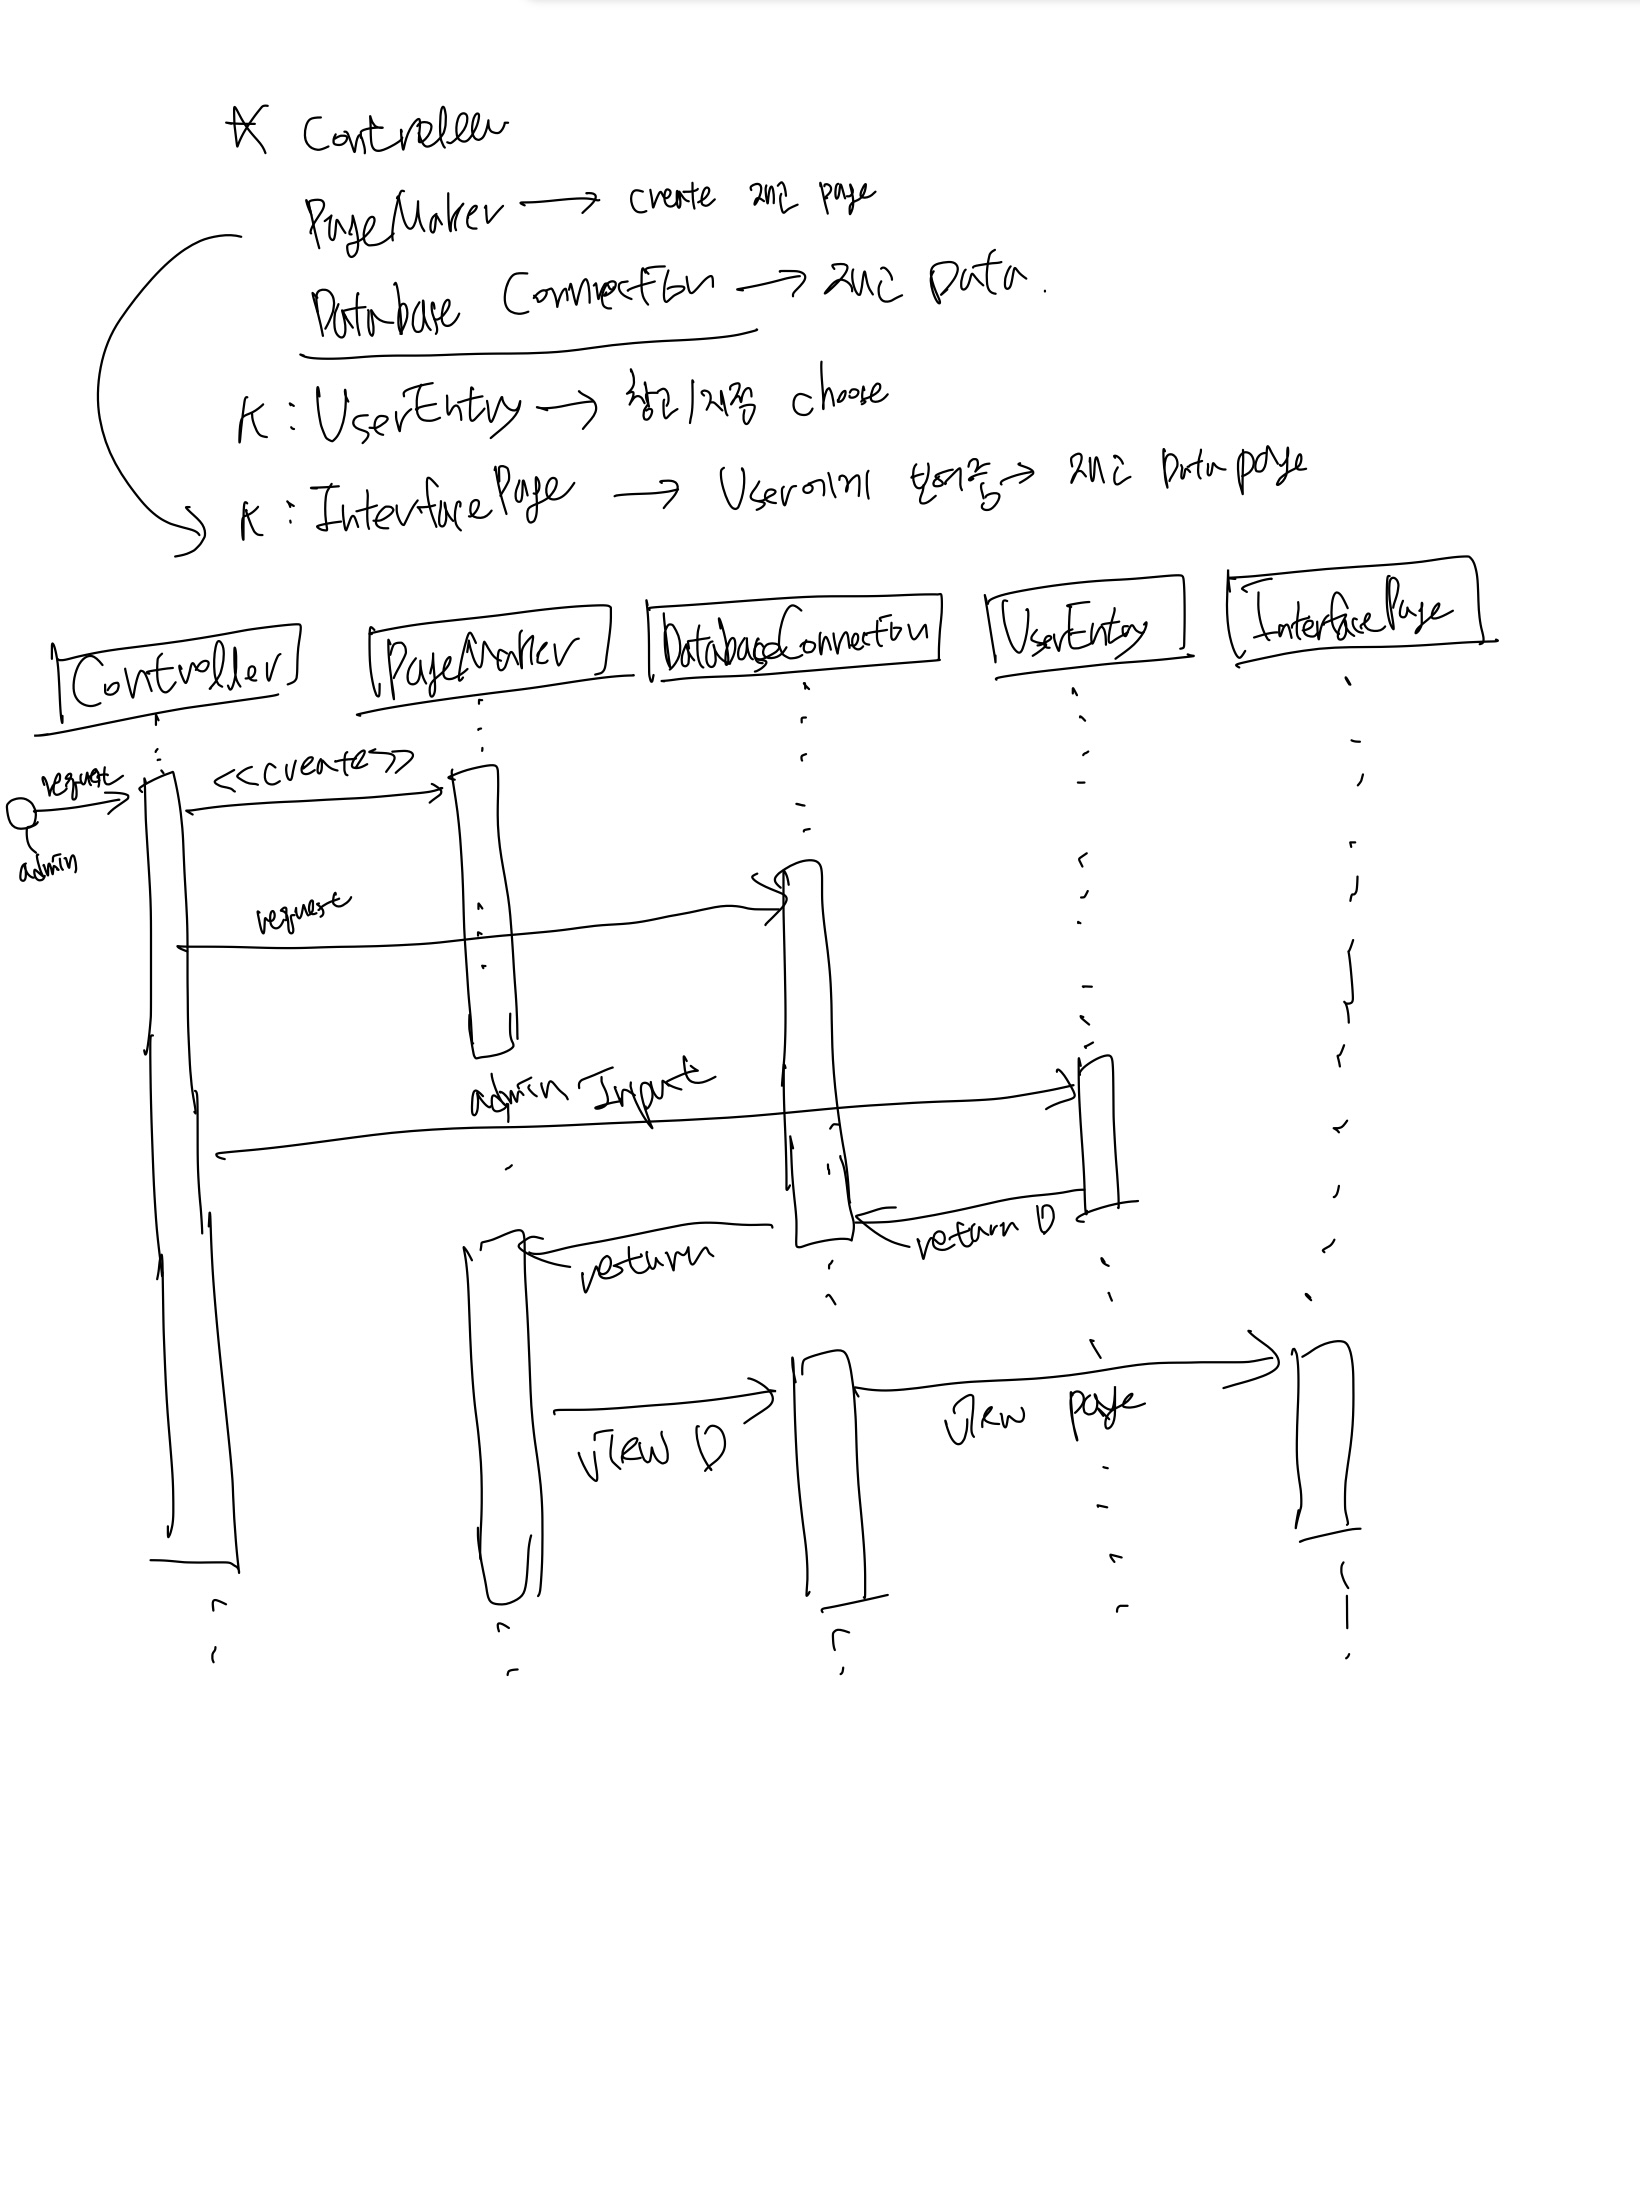 Controller
PageMaker → create 재고 page
Database Connection → 재고 Data.
K : UserEntry → 창고/지출 choose
K : InterfacePage → User에게 보여줌 → 재고 Data page
Controller PageMaker DatabaseConnection UserEntry InterfacePage
request <<create>>
admin
request
admin Input
return D
return
view D
view page